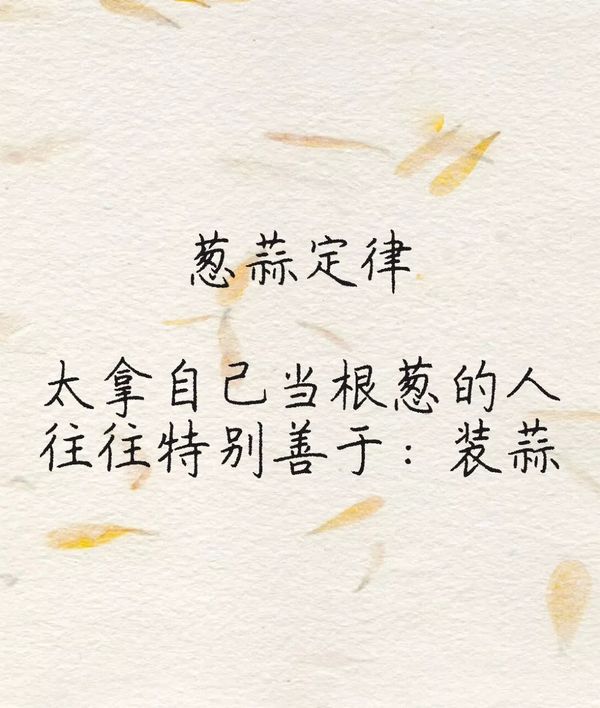 葱蒜定律
太拿自己当根葱的人
往往特别善于：装蒜